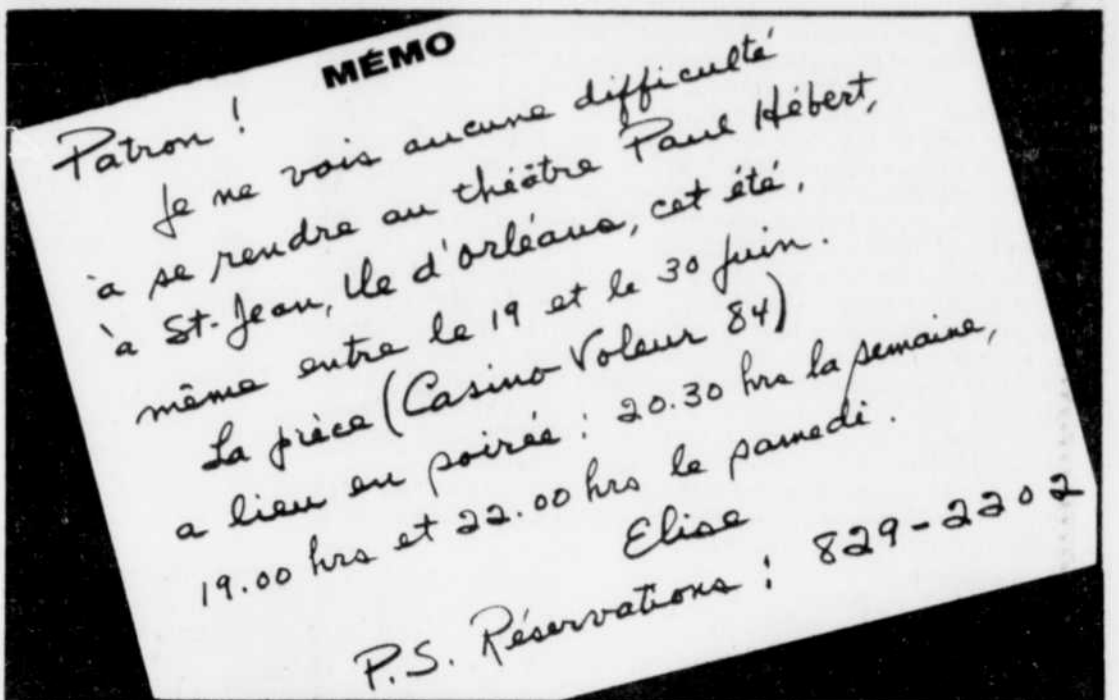 MÉMO
Patron !
Je ne vois aucune difficulté
à se rendre au théâtre Paul Hébert,
à St-Jean, Ile d'orléans, cet été,
même entre le 19 et le 30 juin.
La pièce (Casino Voleur 84)
a lieu en soirée : 20.30 hrs la semaine,
19.00 hrs et 22.00 hrs le samedi.
Elise
P.S. Réservations : 829-2202